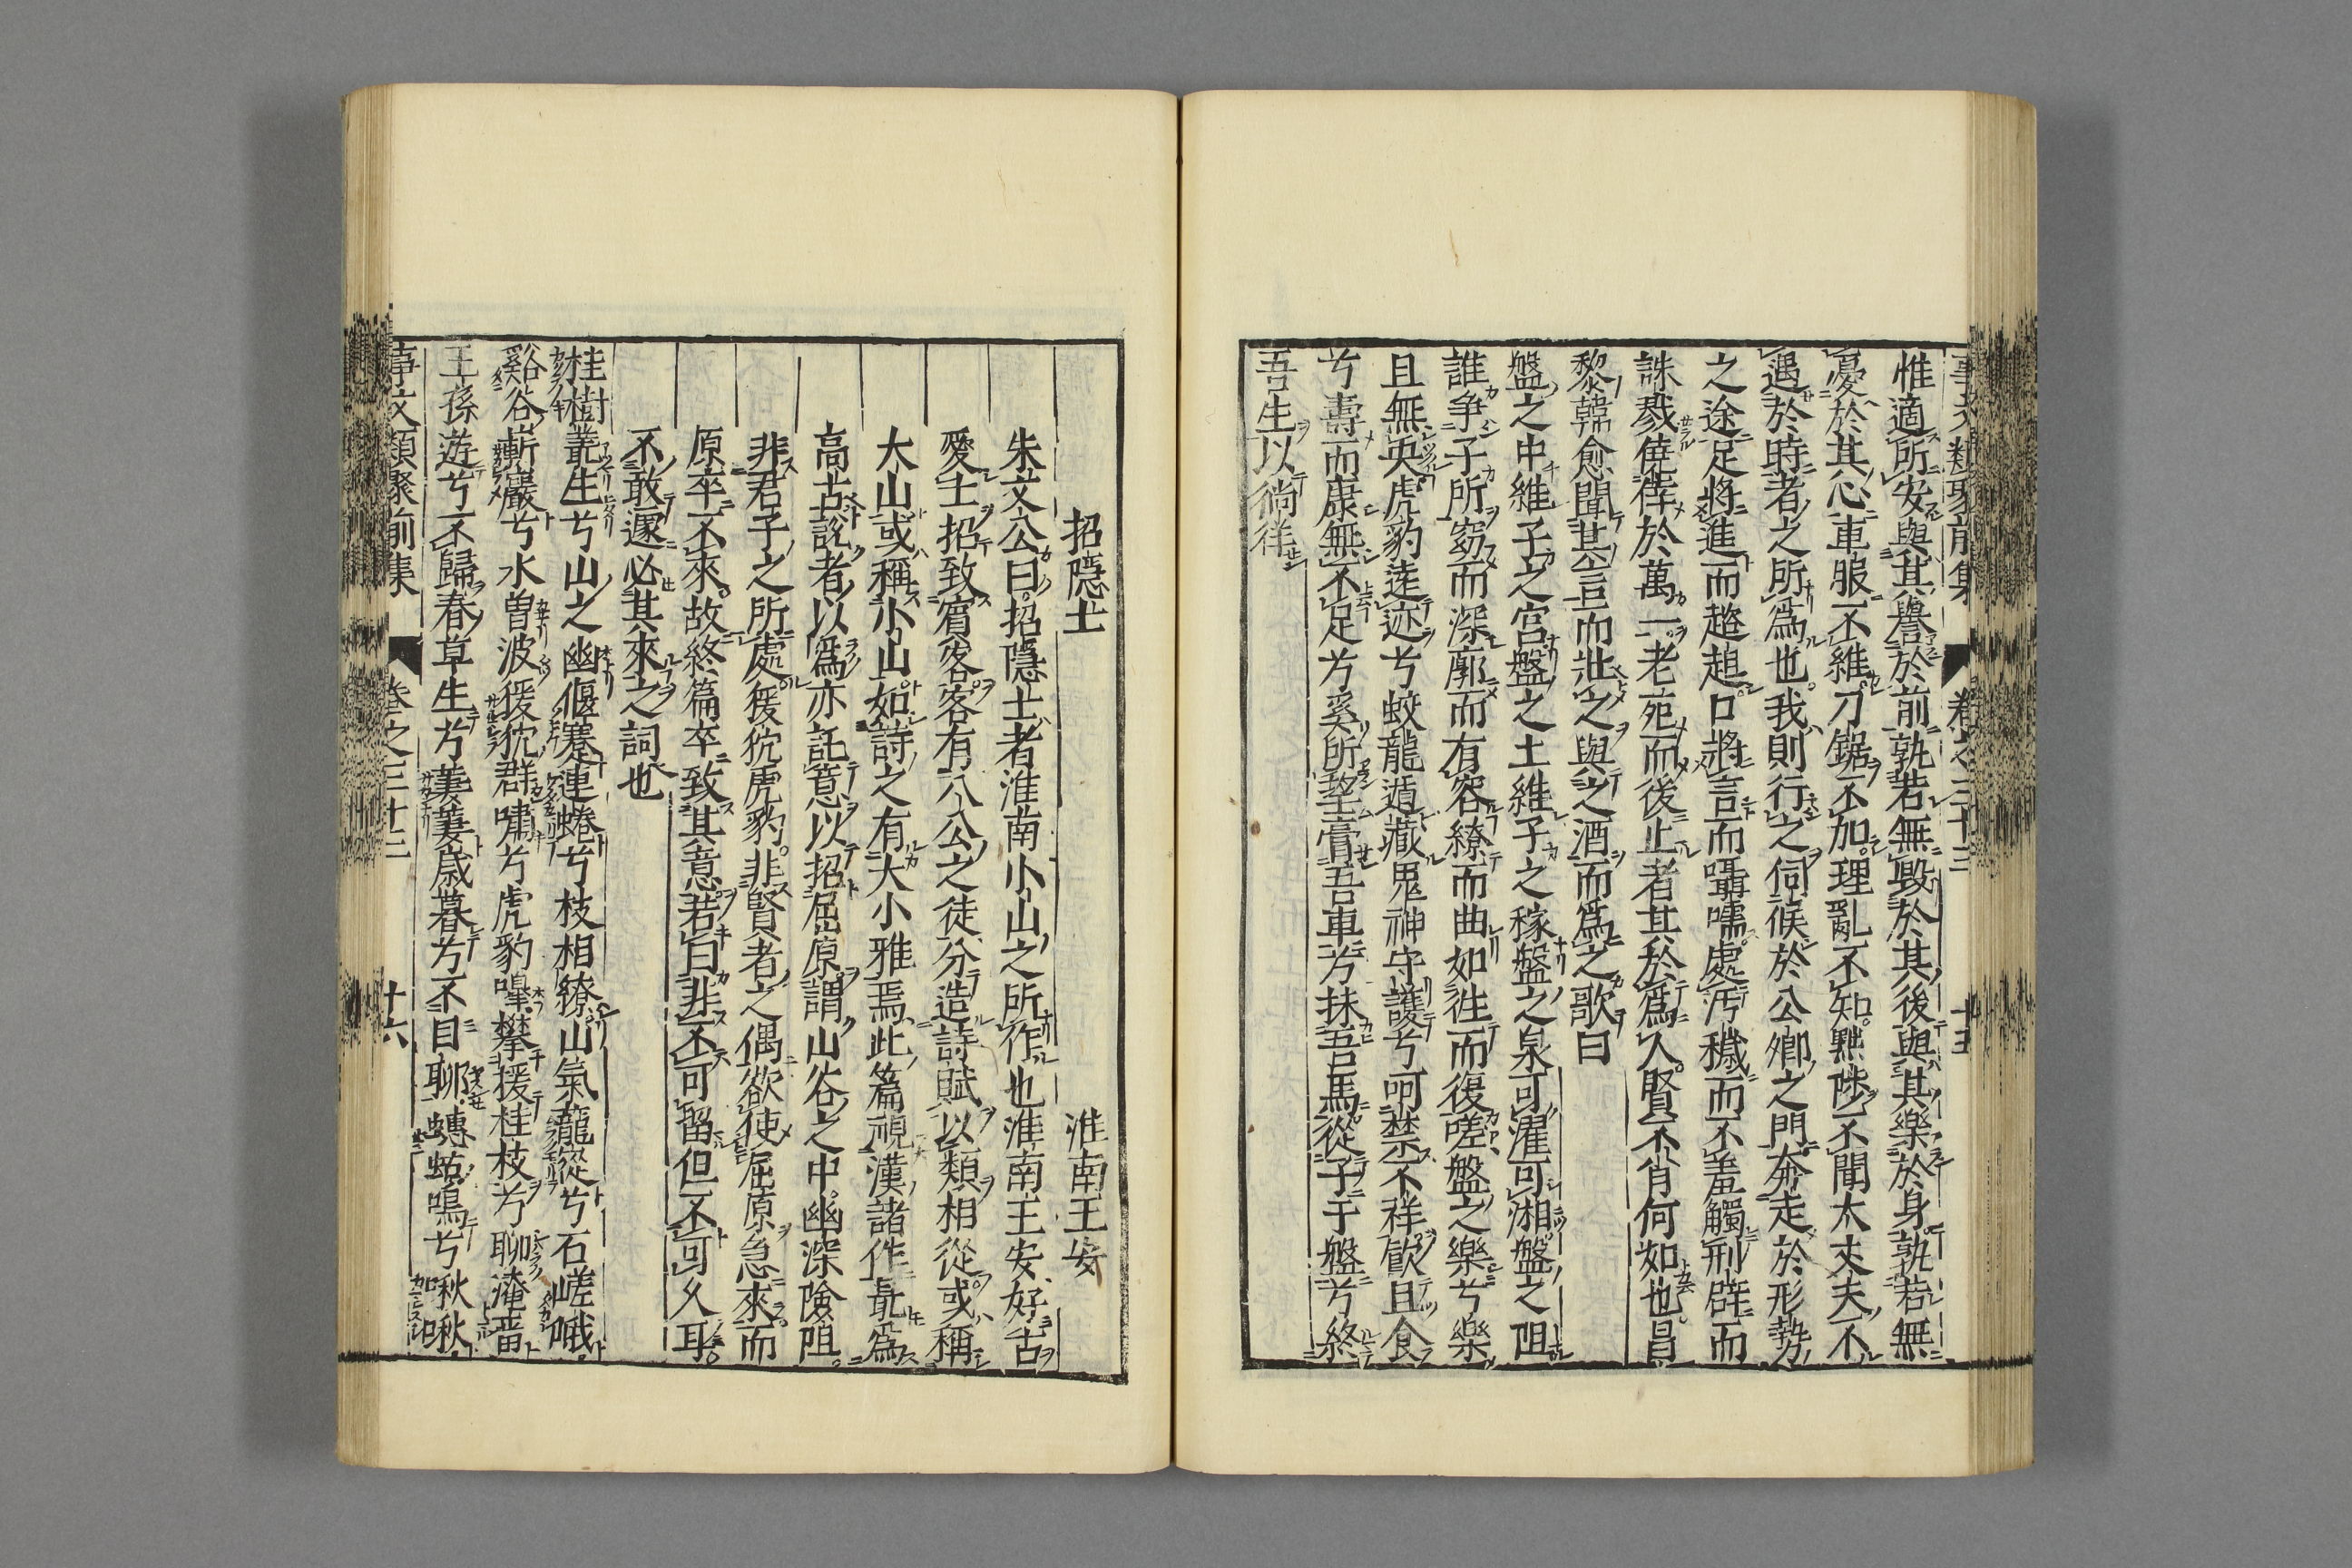 惟適所安與其譽於前孰若無毀於其後與其樂於身孰若無
憂於其心車服不維刀鋸不加理亂不知黜陟不聞大丈夫不
遇於時者之所爲也我則行之伺候於公卿之門奔走於形勢
之途足將進而趑趄口將言而囁嚅處汚穢而不羞觸刑辟而
誅戮僥倖於萬一老死而後止者其於爲人賢不肖何如也昌
黎韓愈聞其言而壯之與之酒而爲之歌曰
盤之中維子之宮盤之土維子之稼盤之泉可濯可湘盤之阻
誰争子所窈而深廓而有容繚而曲如徃而復嗟盤之樂兮樂
且無央虎豹遠迹兮蛟龍遁藏鬼神守護兮呵禁不祥飮且食
兮壽而康無不足兮奚所望膏吾車兮抹吾馬從子于盤兮終
吾生以徜徉
招隱士 淮南王安
朱文公曰招隱士者淮南小山之所作也淮南王安好古
愛士招致賓客客有八公之徒分造詩賦以類相從或稱
大山或稱小山如詩之有大小雅焉此篇視漢諸作最爲
高古說者以爲亦託意以招屈原謂山谷之中幽深險阻
非君子之所處猨狖虎豹非賢者之偶欲使屈原急來而
原卒不來故終篇卒致其意若曰非不可留但不可久耳
不敢遽必其來之詞也
桂樹叢生兮山之幽偃蹇連蜷兮枝相繚山氣巃嵸兮石嵯峨
谿谷嶄巖兮水曽波猨狖群嘯兮虎豹嘷攀援桂枝兮聊淹畱
王孫遊兮不歸春草生兮萋萋歲暮兮不自聊蟪蛄鳴兮啾啾
事文類聚前集 卷之三十三 十六